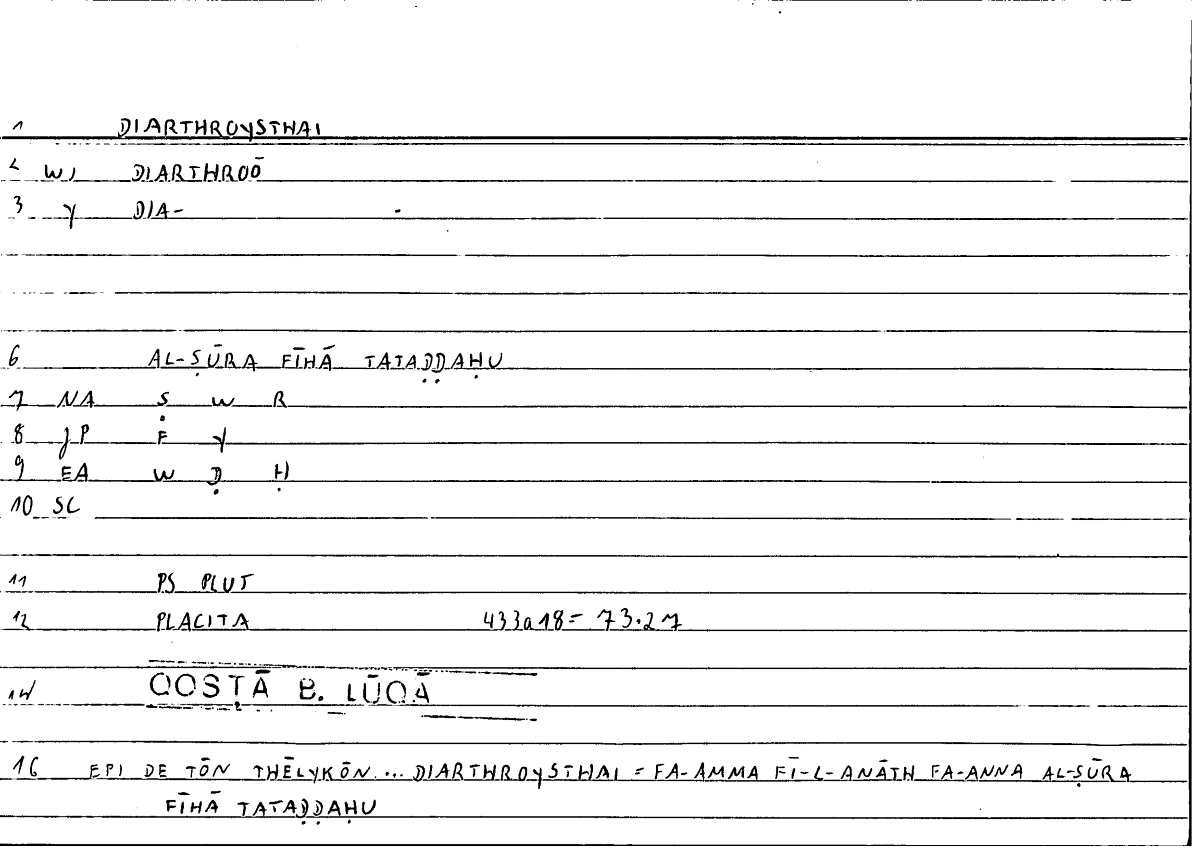 1 DIARTHROYSTHAI
2 WI DIARTHROŌ
3 Y DIA-
6 AL-ṢŪRA FĪHĀ TATAḌḌAḤU
7 NA Ṣ W R
8 JP F Y
9 EA W Ḍ Ḥ
10 SC
11 PS PLUT
12 PLACITA 433a18 = 73.27
14 QOSṬĀ B. LŪQĀ
16 EPI DE TŌN THĒLYKŌN... DIARTHROYSTHAI = FA-AMMA FĪ-L-ANĀTH FA-ANNA AL-ṢŪRA
FĪHĀ TATAḌḌAḤU